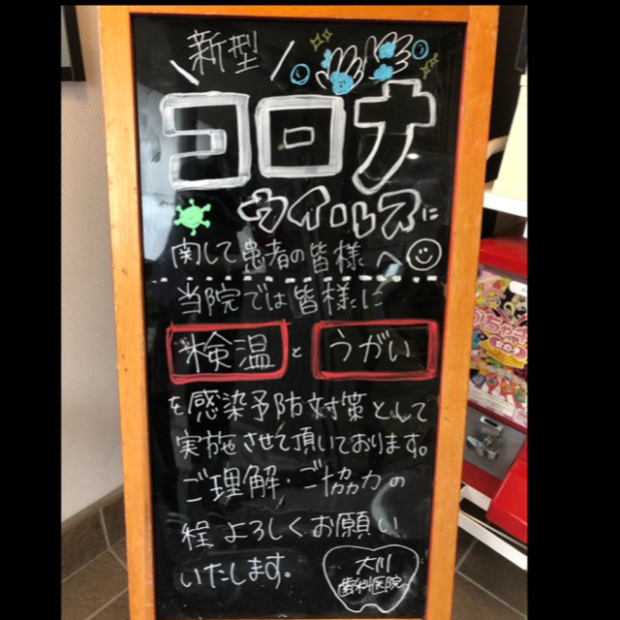 新型
コロナ
ウイルスに
関して患者の皆様へ
当院では皆様に
検温とうがい
を感染予防対策として
実施させて頂いております。
ご理解・ご協力の
程よろしくお願い
いたします。
大川
歯科医院